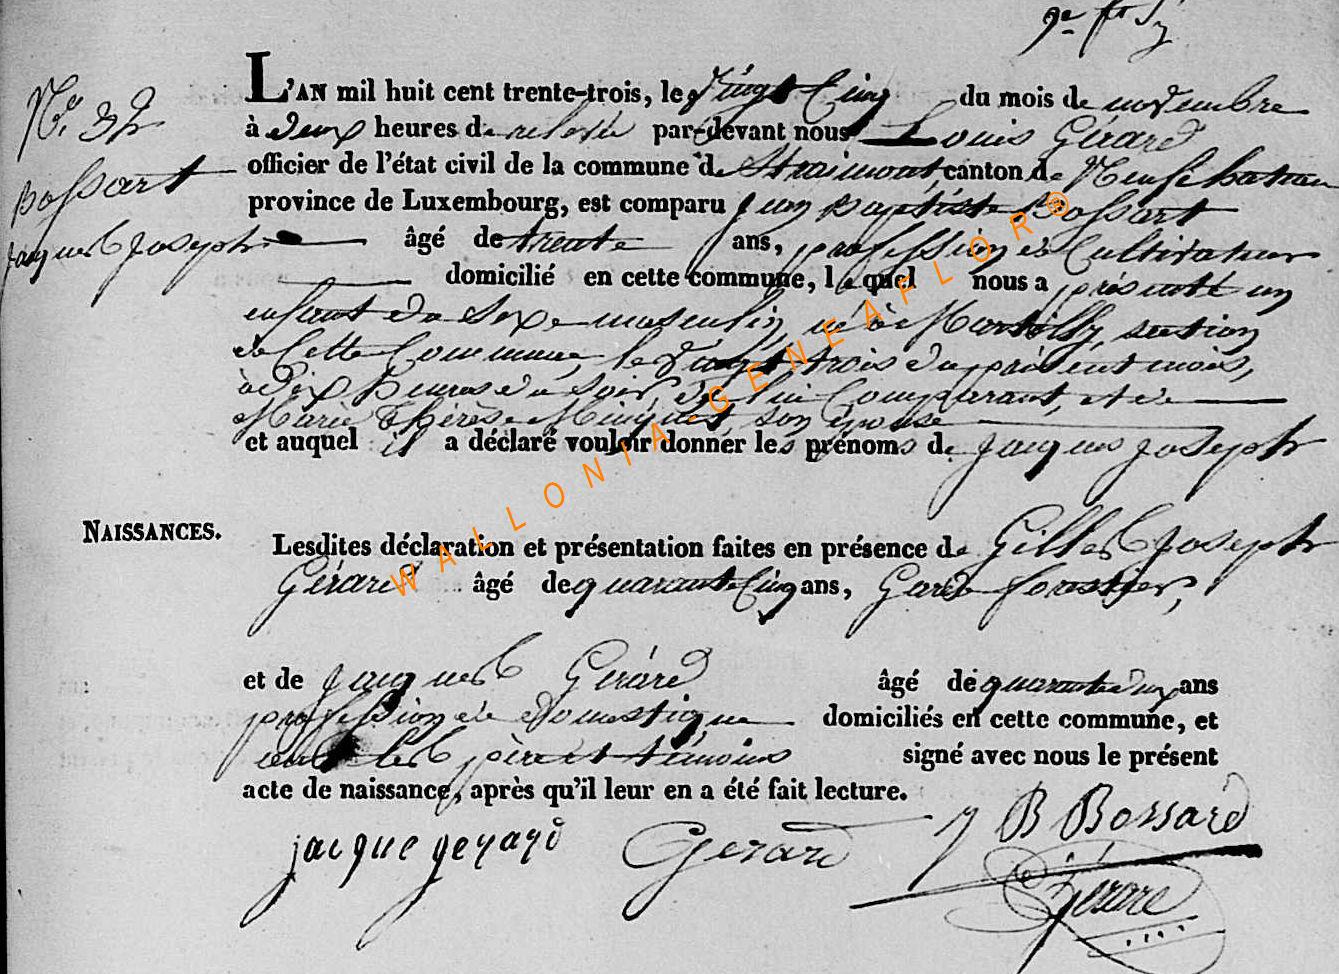 9e ft
L'AN mil huit cent trente-trois, le vingt Cinq du mois de novembre
à deux heures de relevée par-devant nous Louis Gérard
officier de l'état civil de la commune de Straimont, canton de Neufchateau
province de Luxembourg, est comparu Jean Baptiste Bossart
âgé de trente ans, profession de Cultivateur
domicilié en cette commune, lequel nous a présenté un
enfant du Sexe masculin, né à Martilly, section
de Cette Commune, le vingt trois du présent mois,
à dix heures du Soir, de lui Comparant, et de
Marie Thérèse son épouse
et auquel il a déclaré vouloir donner les prénoms de Jacques Joseph
No. 32
Bossart
Jacques Joseph
NAISSANCES.
Lesdites déclaration et présentation faites en présence de Gilles Joseph
Gérard âgé de quarante Cinq ans, Garde forestier,
et de Jacques Gérard âgé de quarante deux ans
profession de domestique domiciliés en cette commune, et
ont les père et témoins signé avec nous le présent
acte de naissance, après qu'il leur en a été fait lecture.
jacque gerard Gerard J B Bossard
Gérard
WALLONIA GENEAFLOR®